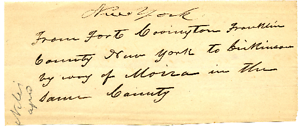 New York
From Fort Covington Franklin
County New York to Dickinson
by way of Moira in the
same County